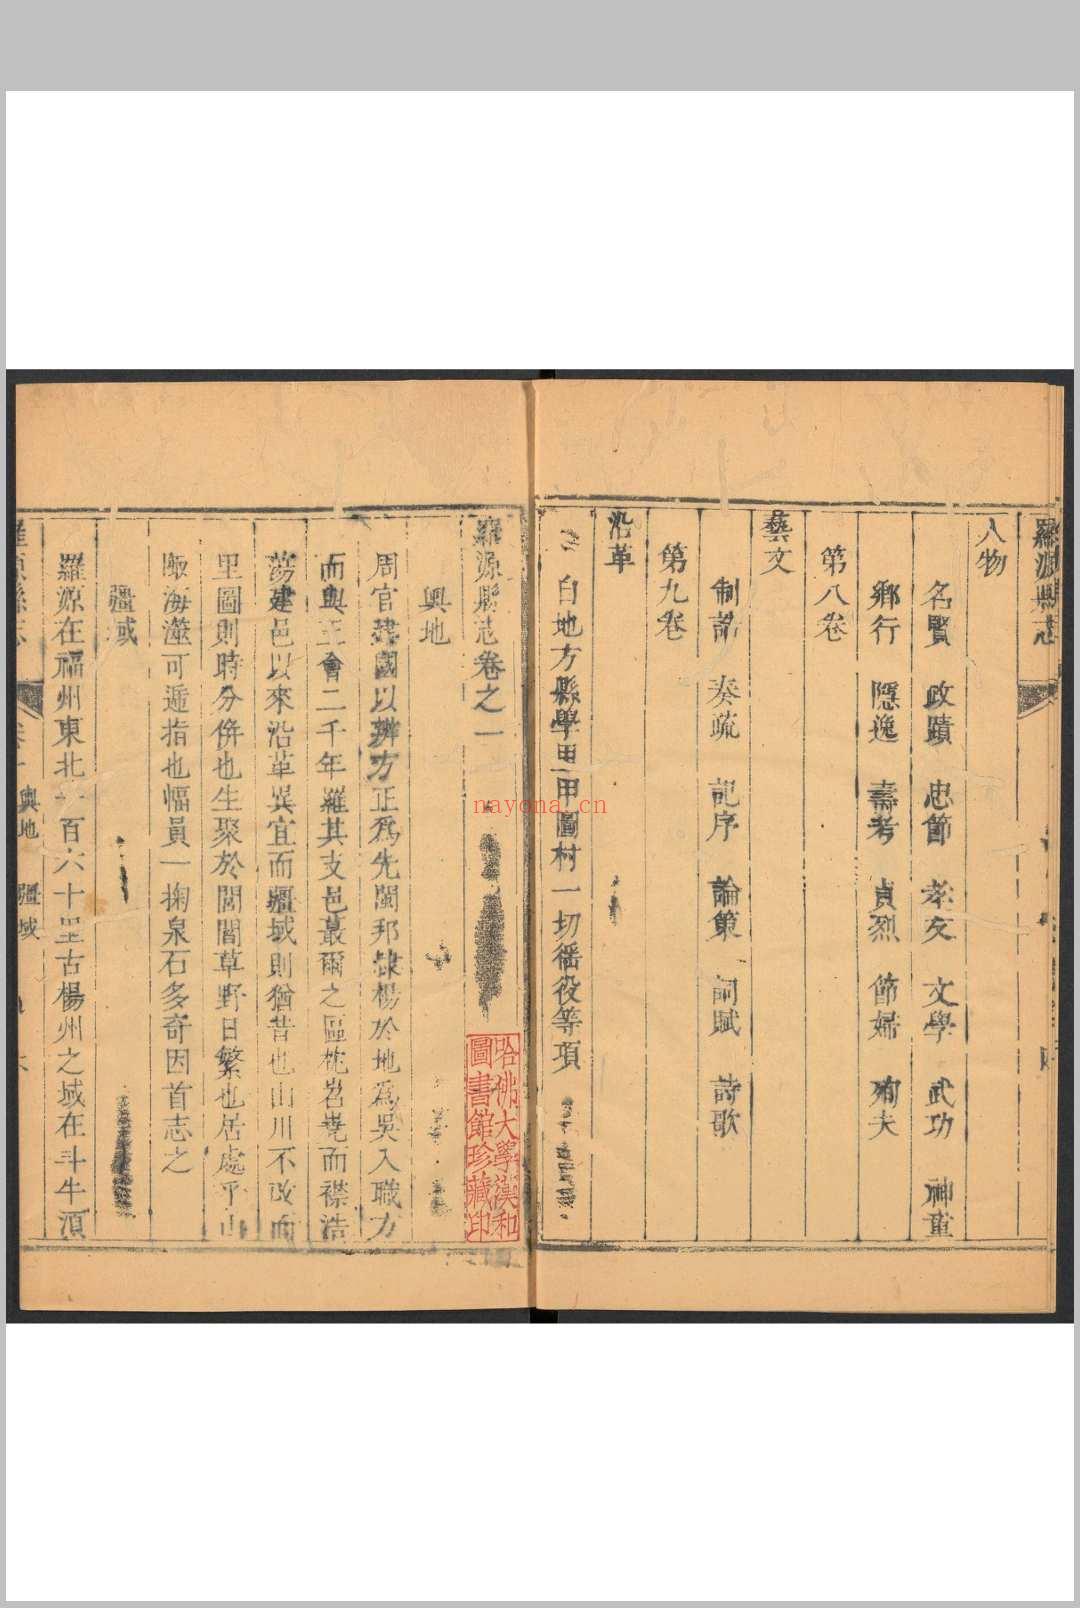 羅源縣志
人物
名賢 政蹟 忠節 孝友 文學 武功 神童
鄉行 隱逸 壽考 貞烈 節婦 殉夫
第八卷
藝文
制誥 奏疏 記序 論策 詞賦 詩歌
第九卷
沿革
自地方縣學里甲圖村一切徭役等項
羅源縣志卷之一
輿地
周官建國以辨方正為先閩邦隸楊於地為吳入職方
而輿王會二千年羅其支邑蕞爾之區枕岧嶢而襟浩
蕩建邑以來沿革異宜而疆域則猶昔也山川不改而
里圖則時分併也生聚於閭閻草野日繁也居處平山
陬海澨可遁指也幅員一掬泉石多奇因首志之
疆域
羅源在福州東北一百六十里古楊州之域在斗牛湏
羅源縣志
卷一
輿地
疆域
哈佛大學漢和
圖書館珍藏印
nayona.cn